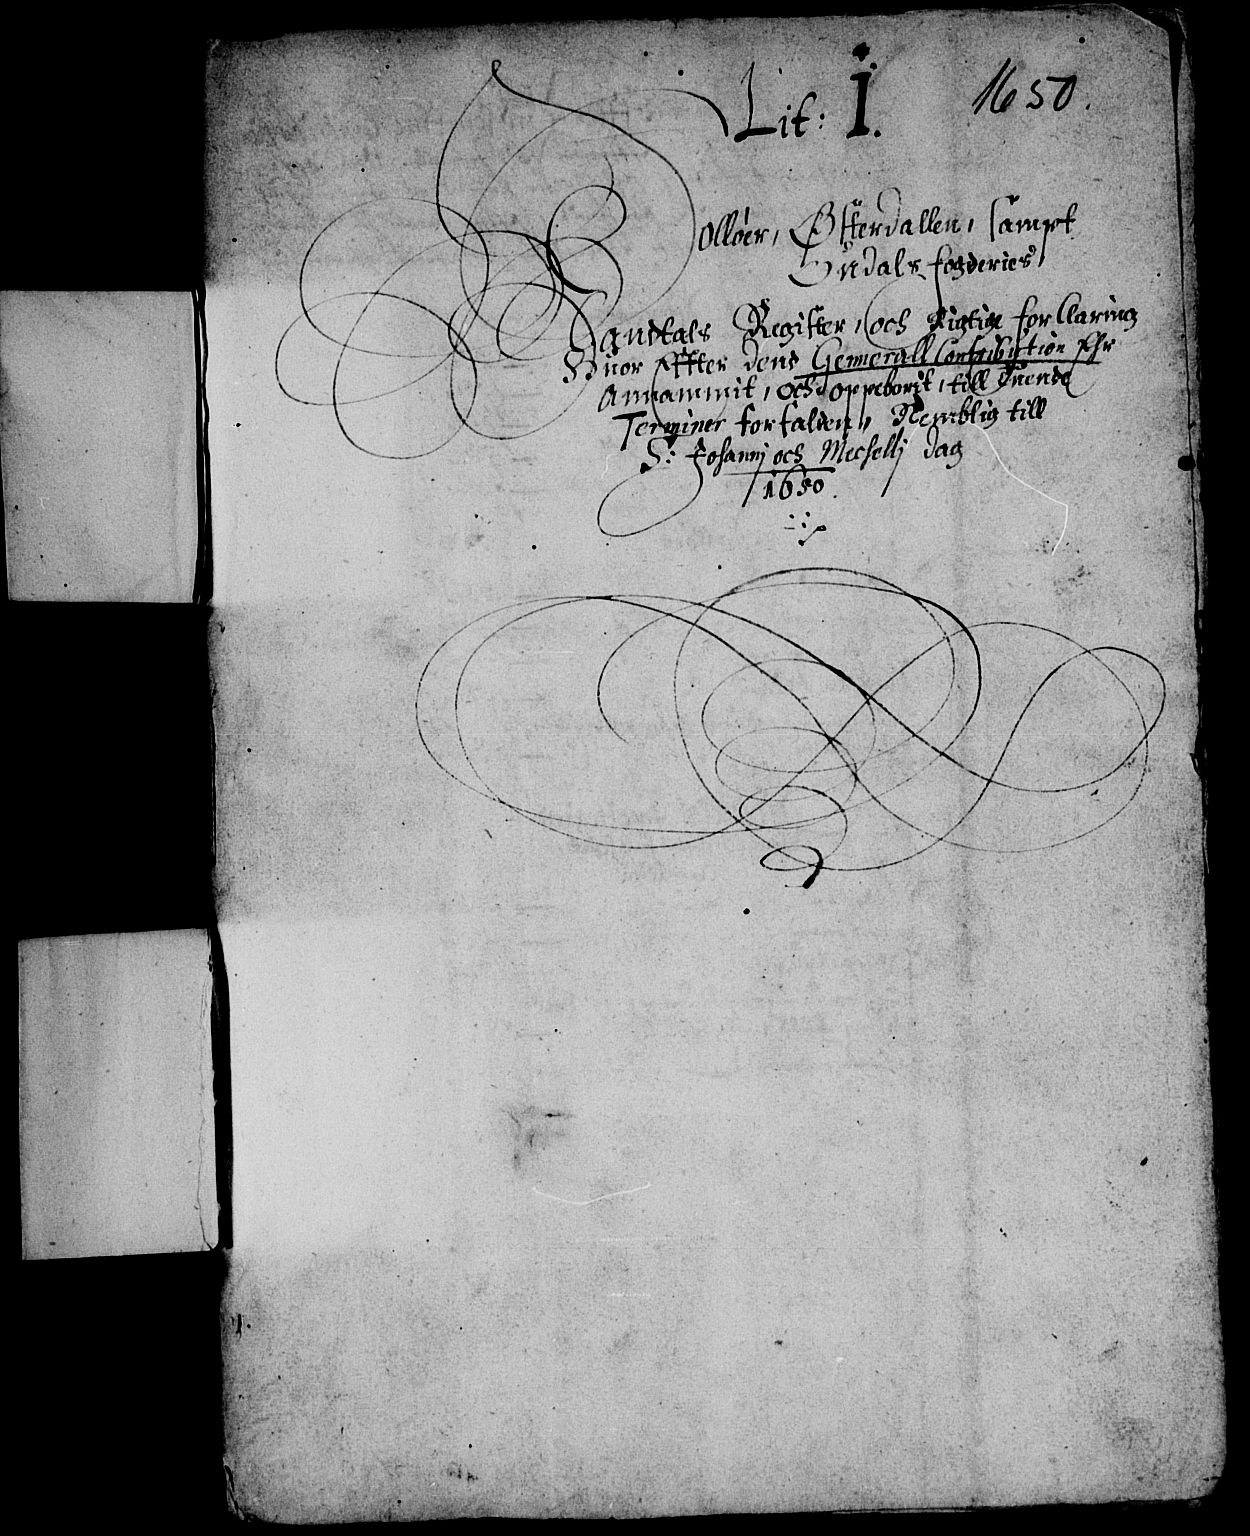 Lit: I. 1650.
Solløer, Østerdallen, sampt
Ordals fogderies
Mandtals Register, och Rigtig forklaring
Huor Effter dend Gennerall Contribution Ehr
Annammit, och oppeborit, till tuende
Terminer forfalden, Nemblig till
S: Johannj och Mechellj dag
1650.